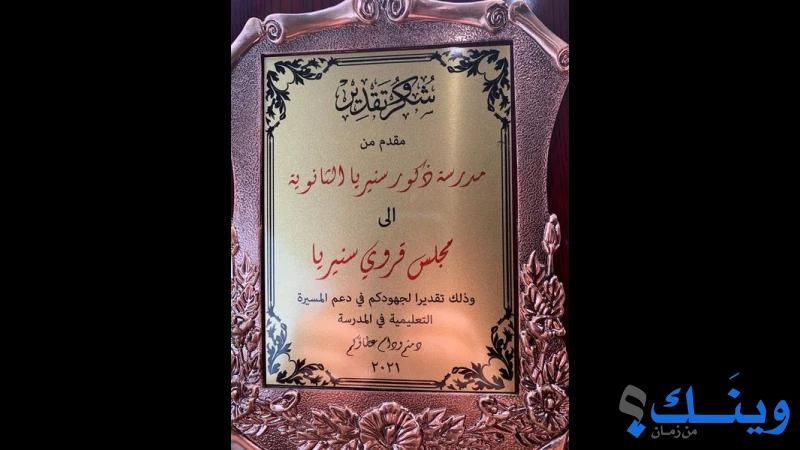 شكر وتقدير
مقدم من
مدرسة ذكور سنيريا الثانوية
الى
مجلس قروي سنيريا
وذلك تقديرا لجهودكم في دعم المسيرة
التعليمية في المدرسة
دمتم ودام عطاؤكم
٢٠٢١
وينَك؟
من زمان